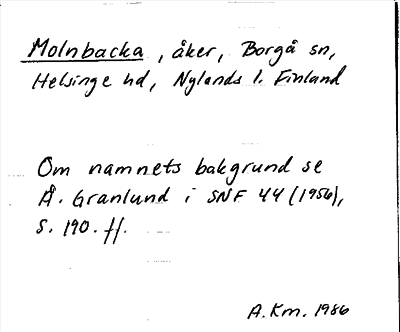 Molnbacka, åker, Borgå sn,
Helsinge hd, Nylands l. Finland
Om namnets bakgrund se
Å. Granlund i SNF 44 (1956),
s. 190. ff.
A.Km. 1986